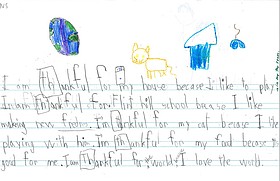 I am thankful for my house becase I like to play
I am thankful for Flint hill school becase I like
making new frends. I'm thankful for my cat becase I like
playing with him. I'm thankful for my food becase is
good for me. I am thankful for the world I love the world.